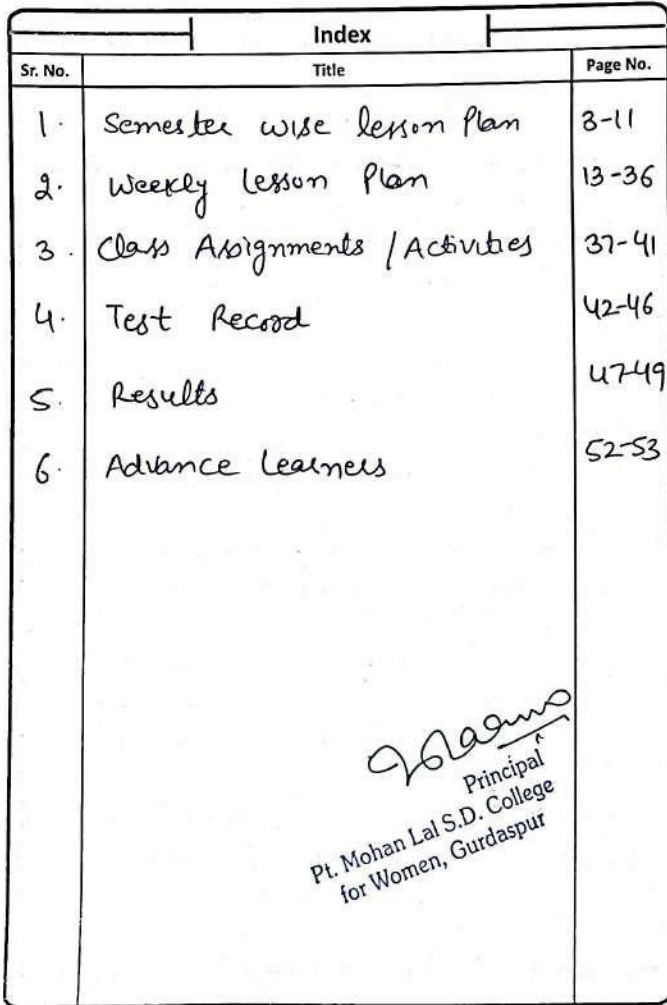 Index
Sr. No. Title Page No.
1. Semester wise lesson Plan 3-11
2. Weekly lesson Plan 13-36
3. Class Assignments / Activities 37-41
4. Test Record 42-46
5. Results 47-49
6. Advance Learners 52-53
Principal
Pt. Mohan Lal S.D. College
for Women, Gurdaspur